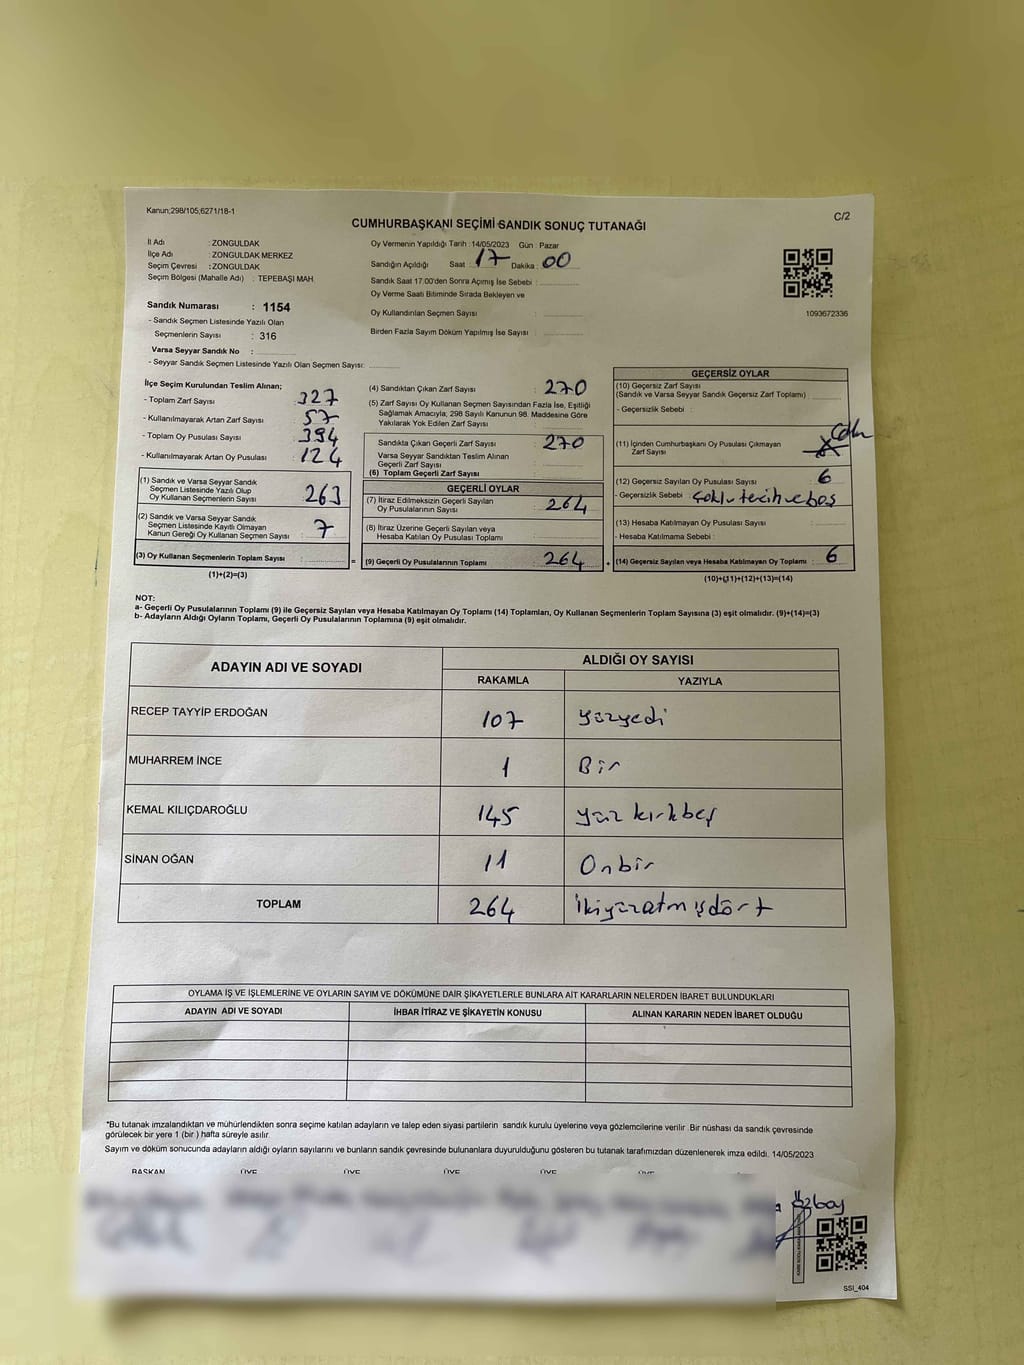 Kanun;298/105,6271/18-1
C/2
CUMHURBAŞKANI SEÇİMİ SANDIK SONUÇ TUTANAĞI
İl Adı : ZONGULDAK
İlçe Adı : ZONGULDAK MERKEZ
Seçim Çevresi : ZONGULDAK
Seçim Bölgesi (Mahalle Adı) : TEPEBAŞI MAH
Sandık Numarası : 1154
- Sandık Seçmen Listesinde Yazılı Olan
Seçmenlerin Sayısı : 316
Varsa Seyyar Sandık No :
- Seyyar Sandık Seçmen Listesinde Yazılı Olan Seçmen Sayısı:
Oy Vermenin Yapıldığı Tarih :14/05/2023 Gün : Pazar
Sandığın Açıldığı Saat : 17 Dakika : 00
Sandık Saat 17.00'den Sonra Açımış İse Sebebi :
Oy Verme Saati Bitiminde Sırada Bekleyen ve
Oy Kullandırılan Seçmen Sayısı :
Birden Fazla Sayım Döküm Yapılmış İse Sayısı :
1093672336
İlçe Seçim Kurulundan Teslim Alınan;
- Toplam Zarf Sayısı : 327
- Kullanılmayarak Artan Zarf Sayısı : 57
- Toplam Oy Pusulası Sayısı : 394
- Kullanılmayarak Artan Oy Pusulası : 124
(1) Sandık ve Varsa Seyyar Sandık
Seçmen Listesinde Yazılı Olup
Oy Kullanan Seçmenlerin Sayısı : 263
(2) Sandık ve Varsa Seyyar Sandık
Seçmen Listesinde Kayıtlı Olmayan
Kanun Gereği Oy Kullanan Seçmen Sayısı : 7
(3) Oy Kullanan Seçmenlerin Toplam Sayısı :
(1)+(2)=(3)
=
(4) Sandıktan Çıkan Zarf Sayısı : 270
(5) Zarf Sayısı Oy Kullanan Seçmen Sayısından Fazla İse, Eşitliği
Sağlamak Amacıyla; 298 Sayılı Kanunun 98. Maddesine Göre
Yakılarak Yok Edilen Zarf Sayısı :
Sandıkta Çıkan Geçerli Zarf Sayısı : 270
Varsa Seyyar Sandıktan Teslim Alınan
Geçerli Zarf Sayısı :
(6) Toplam Geçerli Zarf Sayısı :
GEÇERLİ OYLAR
(7) İtiraz Edilmeksizin Geçerli Sayılan
Oy Pusulalarının Sayısı : 264
(8) İtiraz Üzerine Geçerli Sayılan veya
Hesaba Katılan Oy Pusulası Toplamı :
(9) Geçerli Oy Pusulalarının Toplamı : 264
+
GEÇERSİZ OYLAR
(10) Geçersiz Zarf Sayısı
(Sandık ve Varsa Seyyar Sandık Geçersiz Zarf Toplamı) :
- Geçersizlik Sebebi :
(11) İçinden Cumhurbaşkanı Oy Pusulası Çıkmayan
Zarf Sayısı
(12) Geçersiz Sayılan Oy Pusulası Sayısı : 6
- Geçersizlik Sebebi : çoklu tecih ve boş
(13) Hesaba Katılmayan Oy Pusulası Sayısı :
- Hesaba Katılmama Sebebi :
(14) Geçersiz Sayılan veya Hesaba Katılmayan Oy Toplamı : 6
(10)+(11)+(12)+(13)=(14)
NOT:
a- Geçerli Oy Pusulalarının Toplamı (9) ile Geçersiz Sayılan veya Hesaba Katılmayan Oy Toplamı (14) Toplamları, Oy Kullanan Seçmenlerin Toplam Sayısına (3) eşit olmalıdır. (9)+(14)=(3)
b- Adayların Aldığı Oyların Toplamı, Geçerli Oy Pusulalarının Toplamına (9) eşit olmalıdır.
ADAYIN ADI VE SOYADI ALDIĞI OY SAYISI
RAKAMLA YAZIYLA
RECEP TAYYİP ERDOĞAN 107 yüzyedi
MUHARREM İNCE 1 Bir
KEMAL KILIÇDAROĞLU 145 yüz kırkbeş
SİNAN OĞAN 11 Onbir
TOPLAM 264 ikiyüzatmışdört
OYLAMA İŞ VE İŞLEMLERİNE VE OYLARIN SAYIM VE DÖKÜMÜNE DAİR ŞİKAYETLERLE BUNLARA AİT KARARLARIN NELERDEN İBARET BULUNDUKLARI
ADAYIN ADI VE SOYADI İHBAR İTİRAZ VE ŞİKAYETİN KONUSU ALINAN KARARIN NEDEN İBARET OLDUĞU
*Bu tutanak imzalandıktan ve mühürlendikten sonra seçime katılan adayların ve talep eden siyasi partilerin sandık kurulu üyelerine veya gözlemcilerine verilir. Bir nüshası da sandık çevresinde
görülecek bir yere 1 (bir ) hafta süreyle asılır.
Sayım ve döküm sonucunda adayların aldığı oyların sayılarını ve bunların sandık çevresinde bulunanlara duyurulduğunu gösteren bu tutanak tarafımızdan düzenlenerek imza edildi. 14/05/2023
BAŞKAN ÜYE ÜYE ÜYE ÜYE ÜYE
Özbay
SSI_404